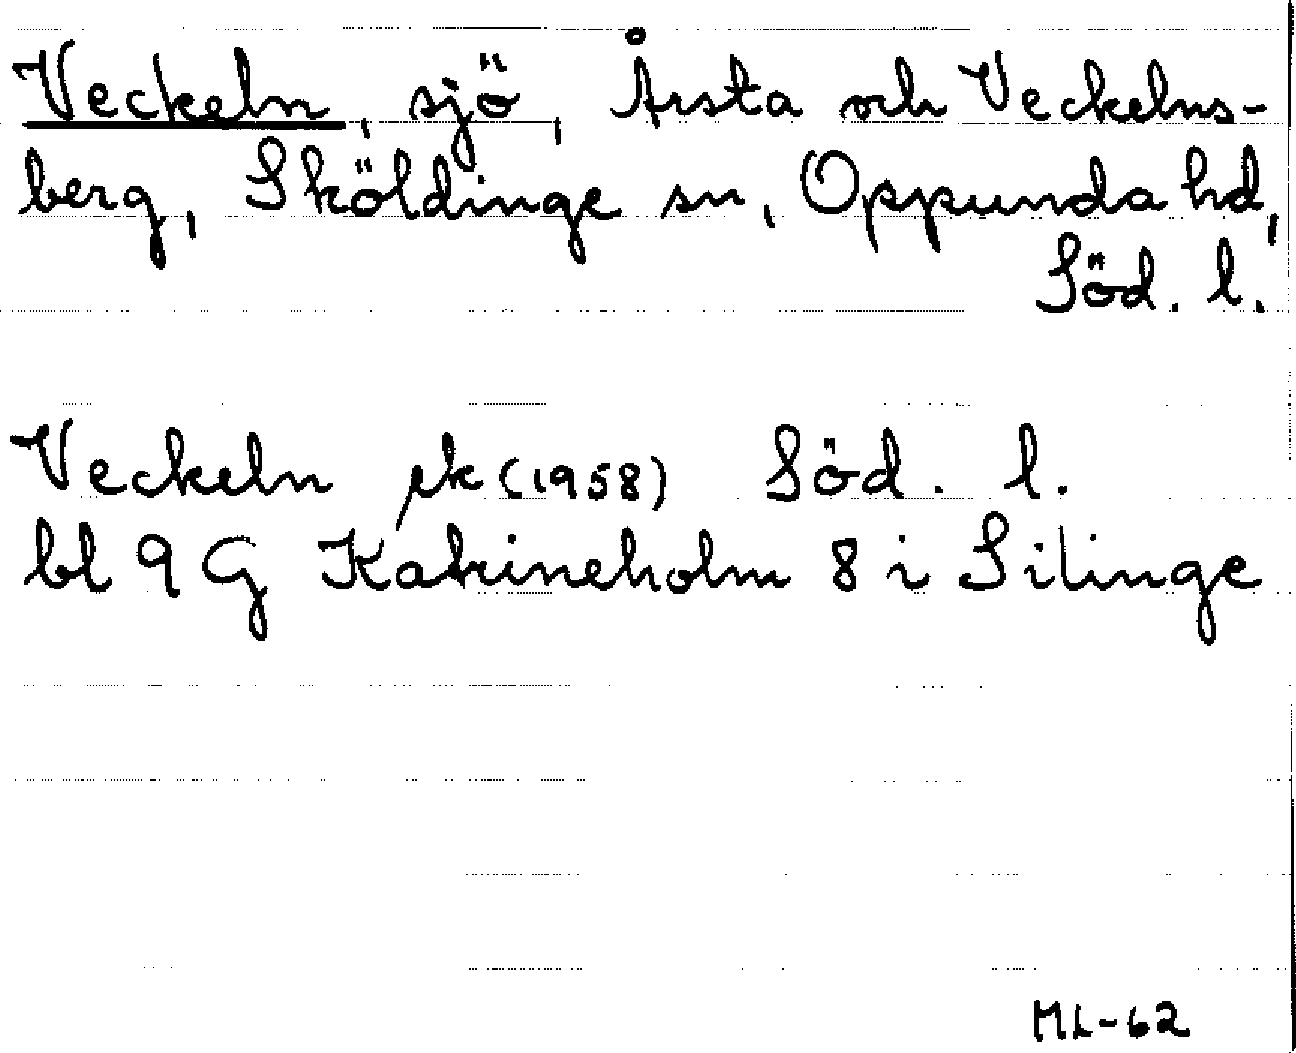 Veckeln, sjö, Årsta och Veckelns-
berg, Sköldinge sn, Oppunda hd,
Söd. l.
Veckeln ek (1958) Söd. l.
bl 9 G Katrineholm 8 i Silinge
ML-62